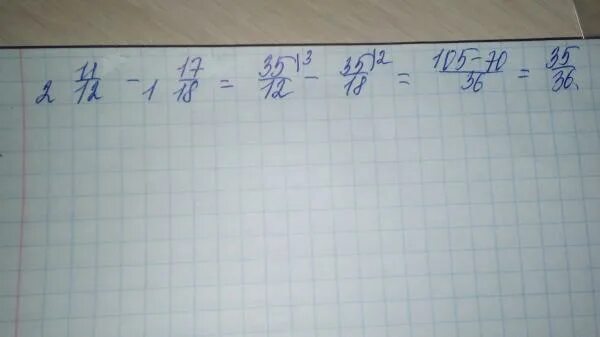 2 11/12 - 1 17/18 = 35/12 |3 - 35/18 |2 = 105-70/36 = 35/36.